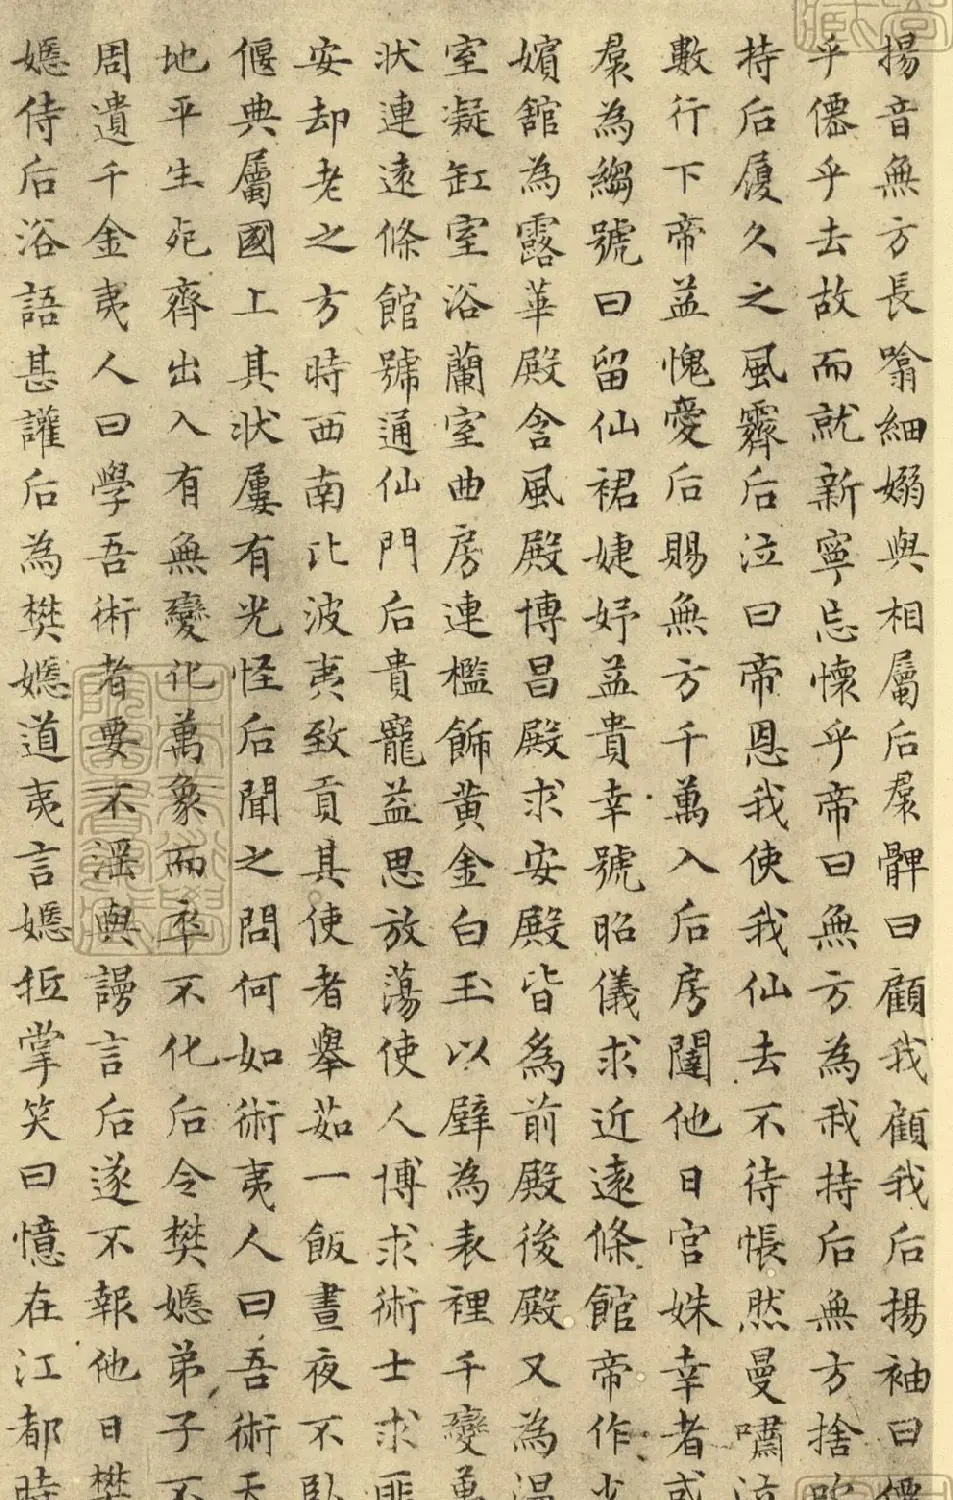 揚音無方長噏細嫋與相屬后裙髀曰顧我顧我后揚袖曰僊
乎僊乎去故而就新寧忘懷乎帝曰無方為我持后無方捨吹
持后履久之風霽后泣曰帝恩我使我仙去不待悵然曼嘯泣
數行下帝益愧愛后賜無方千萬入后房闥他日宮姝幸者或
裙為縐號曰留仙裙婕妤益貴幸號昭儀求近遠條館帝作少
嬪館為露華殿含風殿博昌殿求安殿皆為前殿後殿又為温
室凝缸室浴蘭室曲房連檻飾黄金白玉以壁為表裡千變萬
狀連遠條館號通仙門后貴寵益思放蕩使人博求術士求匪
安却老之方時西南北波夷致貢其使者舉茹一飯晝夜不卧
偃典屬國上其狀屢有光怪后聞之問何如術夷人曰吾術天
地平生死齊出入有無變化萬象而卒不化后令樊嫕弟子不
周遺千金夷人曰學吾術者要不淫與謾言后遂不報他日樊
嫕侍后浴語甚讙后為樊嫕道夷言嫕抵掌笑曰憶在江都時